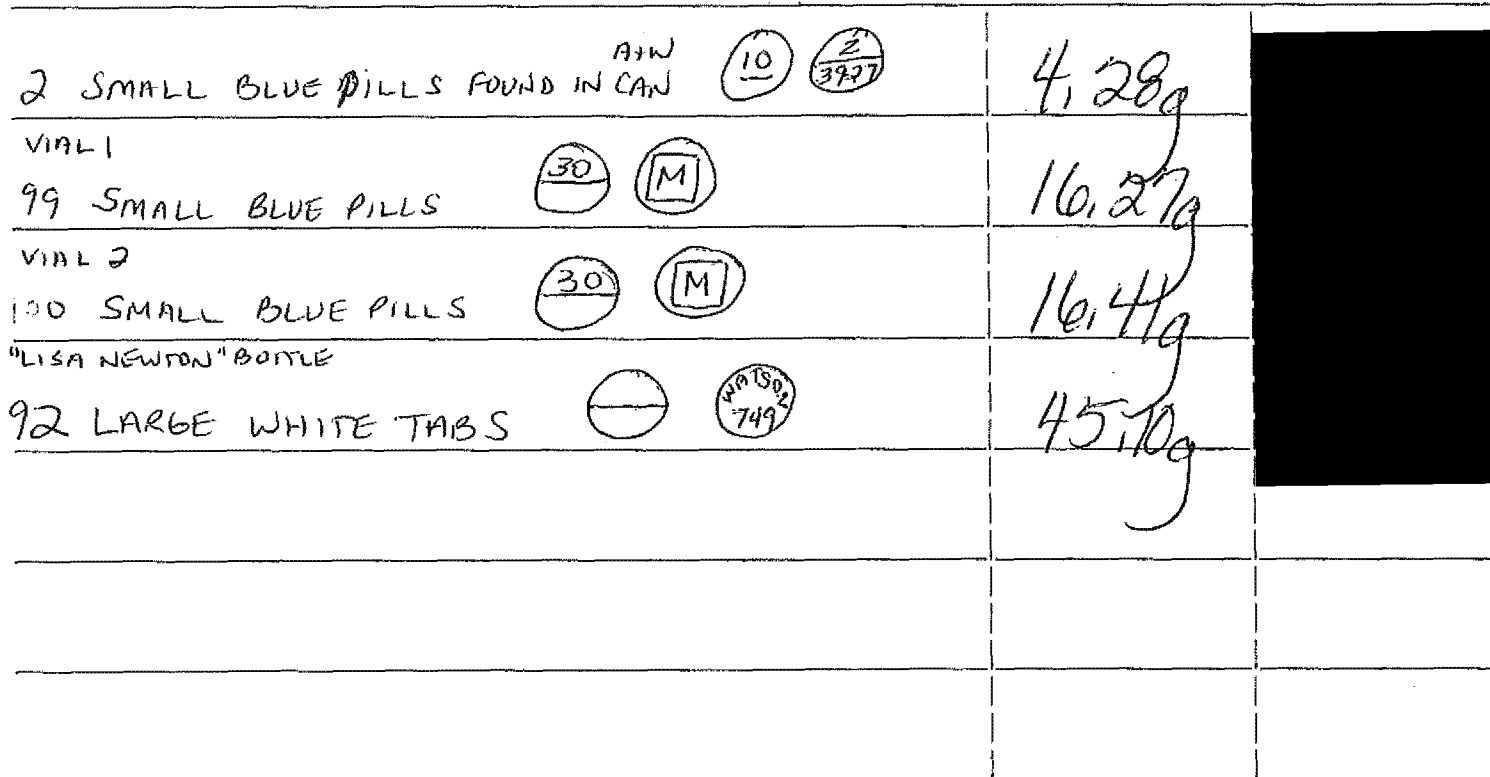 A+W
2 SMALL BLUE PILLS FOUND IN CAN 10 Z 3927 4.28g
VIAL 1
99 SMALL BLUE PILLS 30 M 16.27g
VIAL 2
100 SMALL BLUE PILLS 30 M 16.41g
"LISA NEWTON" BOTTLE
92 LARGE WHITE TABS WATSON 749 45.70g